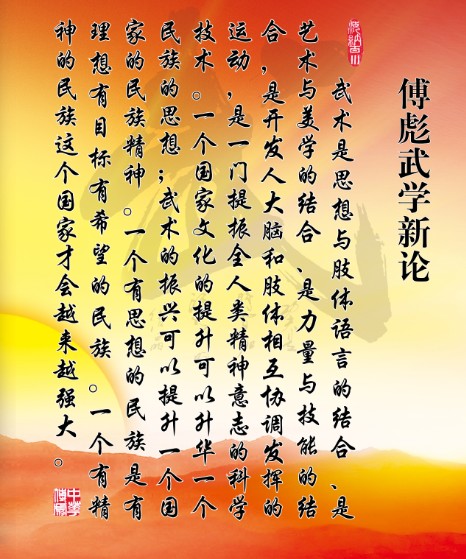 傅彪武学新论
武术是思想与肢体语言的结合、是
艺术与美学的结合、是力量与技能的结
合，是开发人大脑和肢体相互协调发挥的
运动，是一门提振全人类精神意志的科学
技术。一个国家文化的提升可以升华一个
民族的思想；武术的振兴可以提升一个国
家的民族精神。一个有思想的民族是有
理想有目标有希望的民族。一个有精
神的民族这个国家才会越来越强大。